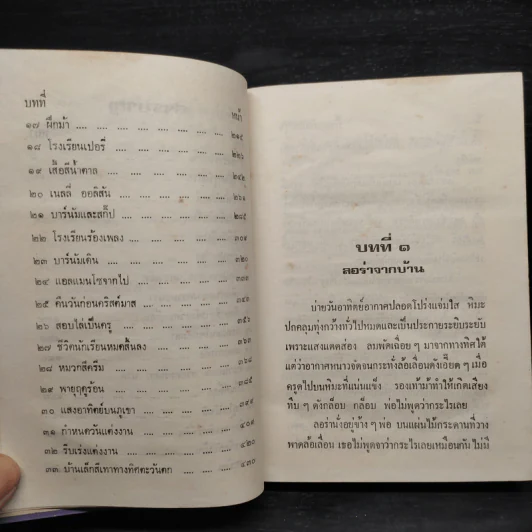 บทที่ หน้า
๑๗ ผึกม้า .... .... .... .... .... .... .... ๒๑๔
๑๘ โรงเรียนเปอรี่ .... .... .... .... .... ๒๒๖
๑๙ เสื้อสีน้ำตาล .... .... .... .... .... ....
๒๐ เนลลี่ ออลิสัน .... .... .... .... .... ๒๖๑
๒๑ บาร์นัมและสกิ๊ป .... .... .... .... .... ๒๘๕
๒๒ โรงเรียนร้องเพลง .... .... .... .... ๓๐๙
๒๓ บาร์นัมเดิน .... .... .... .... .... ๓๒๐
๒๔ แอลแมนโซจากไป .... .... .... ....
๒๕ คืนวันก่อนคริสต์มาส .... .... .... .... ๓๔๖
๒๖ สอบไล่เป็นครู .... .... .... .... .... ๓๕๖
๒๗ ชีวิตนักเรียนหมดสิ้นลง .... .... .... ๓๖๓
๒๘ หมวกสีครีม .... .... .... .... .... ๓๖๘
๒๙ พายุฤดูร้อน .... .... .... .... .... ๓๘๕
๓๐ แสงอาทิตย์บนภูเขา .... .... .... ....
๓๑ กำหนดวันแต่งงาน .... .... .... .... ๔๐๙
๓๒ รีบเร่งแต่งงาน .... .... .... .... ๔๒๐
๓๓ บ้านเล็กสีเทาทางทิศตะวันตก .... .... .... ๔๓๐
บทที่ ๑
ลอร่าจากบ้าน
บ่ายวันอาทิตย์อากาศปลอดโปร่งแจ่มใส หิมะ
ปกคลุมทุ่งกว้างทั่วไปหมดและเป็นประกายระยิบระยับ
เพราะแสงแดดส่อง ลมพัดเฉื่อย ๆ มาจากทางทิศใต้
แต่ว่าอากาศหนาวจัดจนกระทั่งล้อเลื่อนดังเอี๊ยด ๆ เมื่อ
ครูดไปบนหิมะที่แน่นแข็ง รองเท้าม้าทำให้เกิดเสียง
ทึบ ๆ ดังกล็อบ กล็อบ พ่อไม่พูดว่ากระไรเลย
ลอร่านั่งอยู่ข้าง ๆ พ่อ บนแผ่นไม้กระดานที่วาง
พาดล้อเลื่อน เธอไม่พูดจาว่ากระไรเลยเหมือนกัน ไม่มี